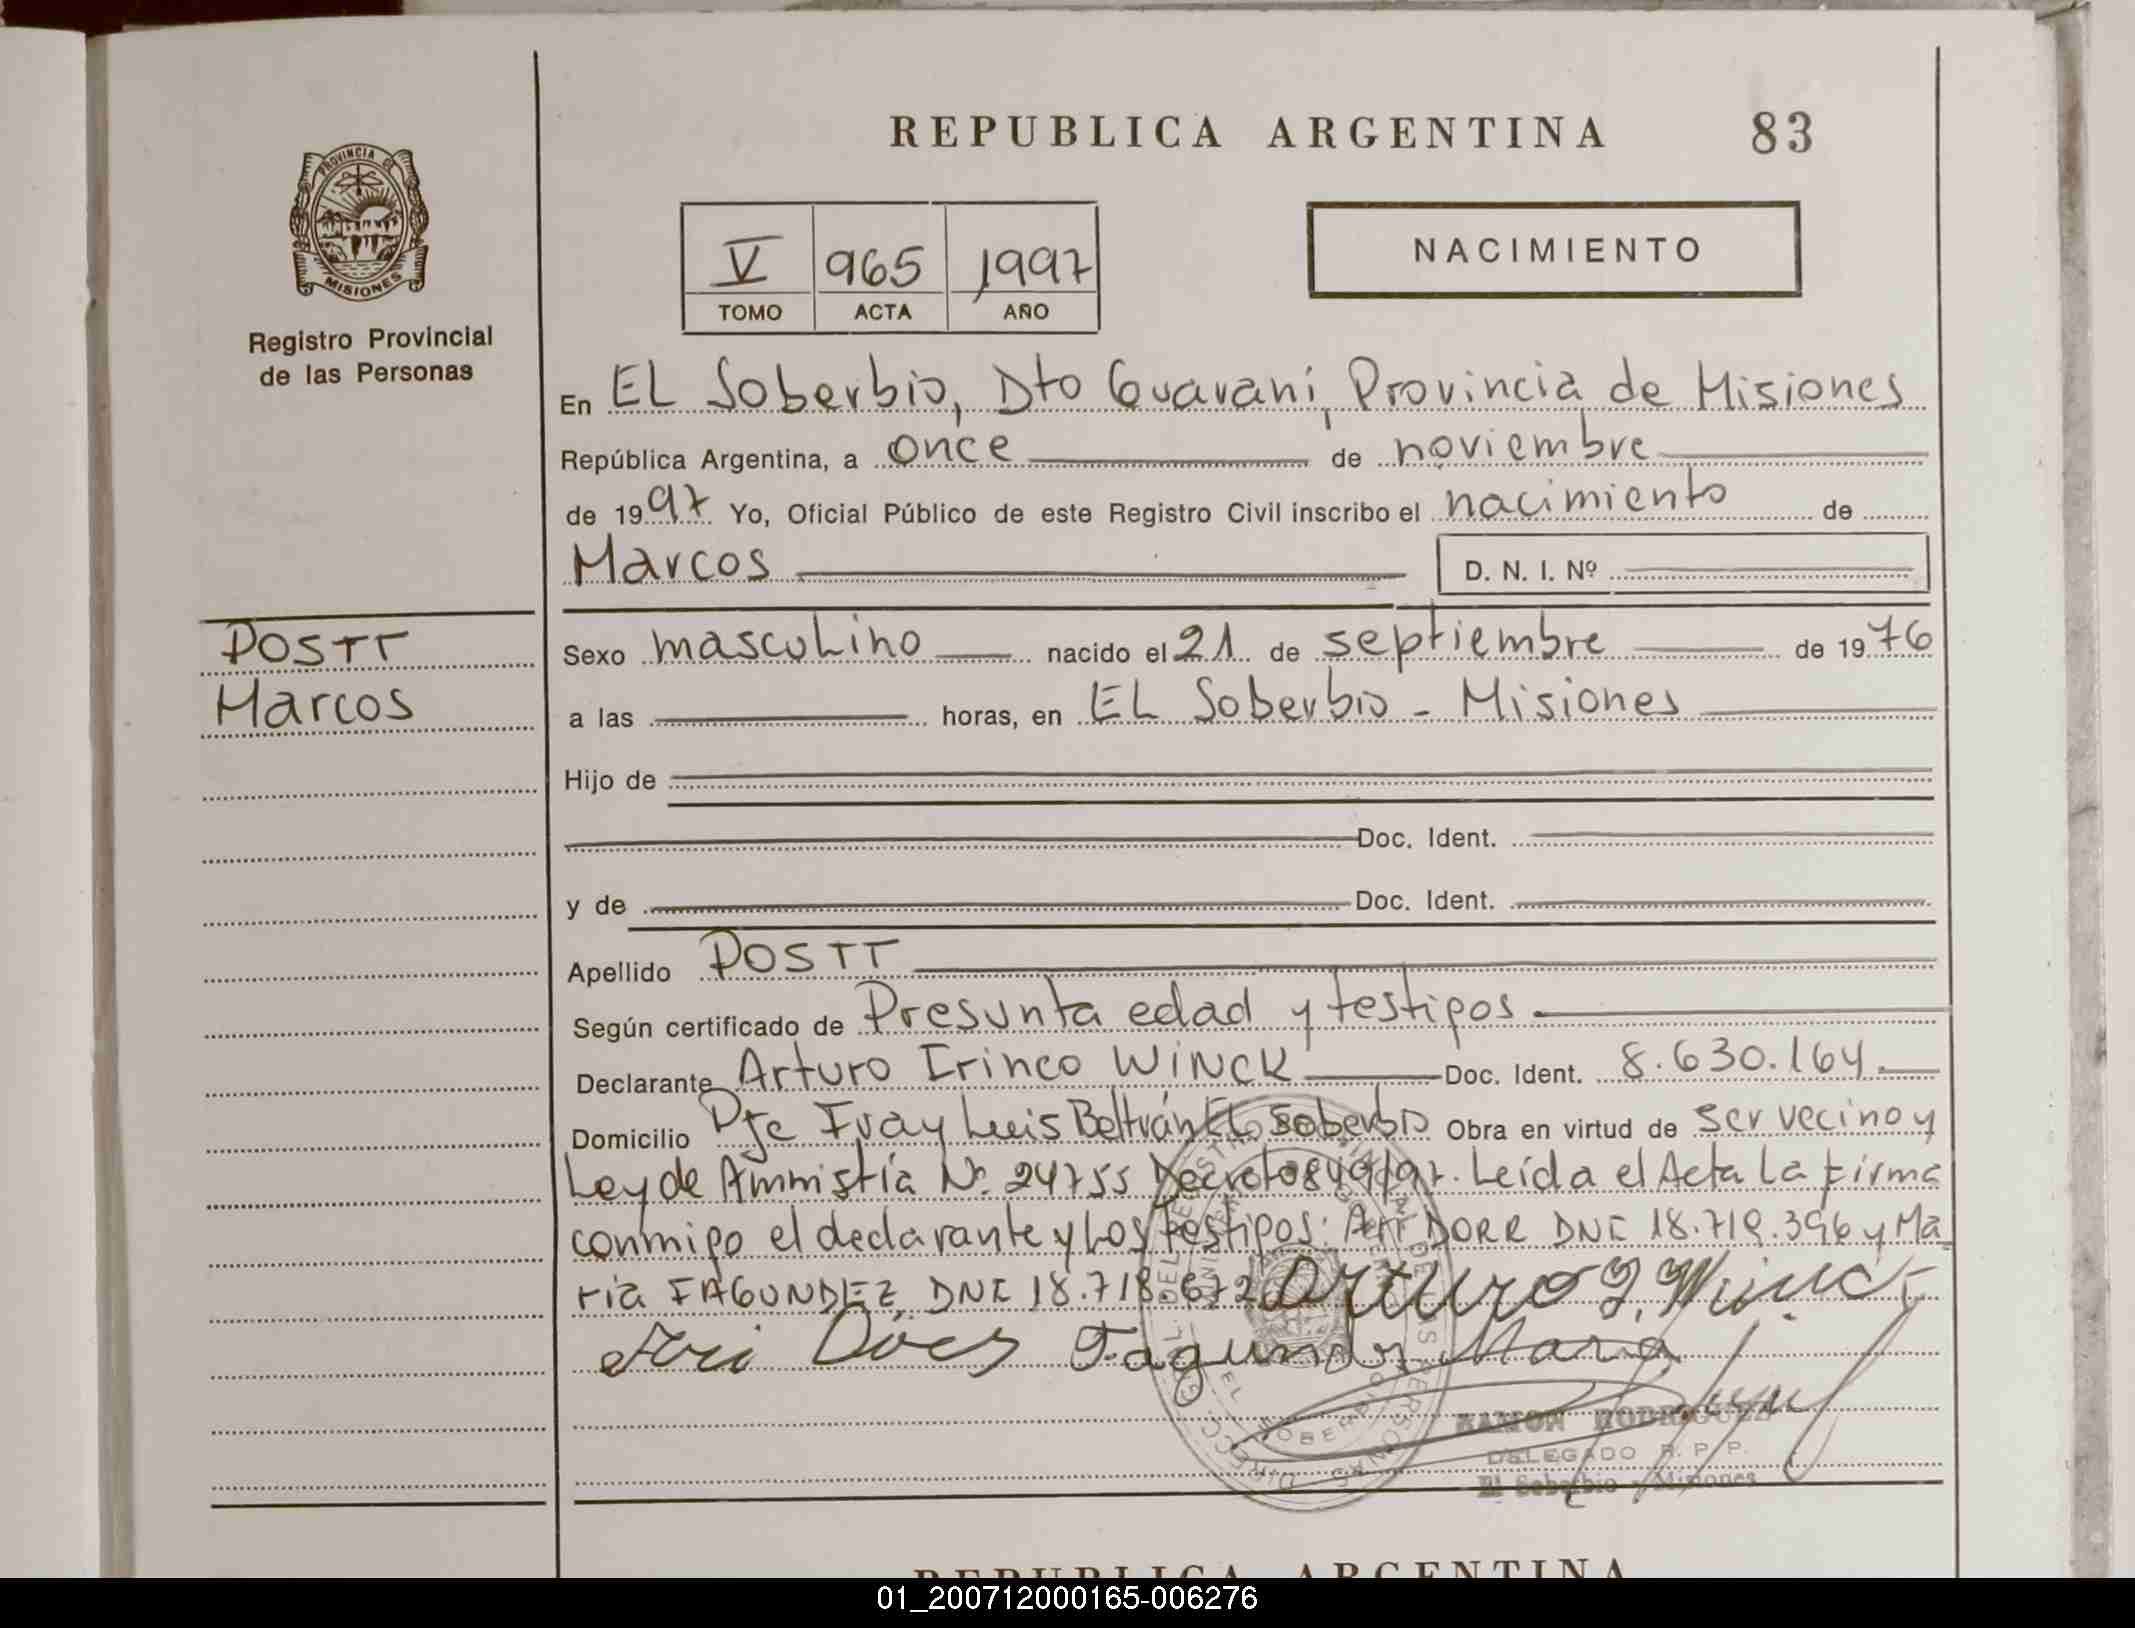 REPUBLICA ARGENTINA 83
PROVINCIA DE
MISIONES
Registro Provincial
de las Personas
V 965 1997
TOMO ACTA AÑO
NACIMIENTO
En EL Soberbio, Dto Guaraní, Provincia de Misiones
República Argentina, a once de noviembre
de 1997 Yo, Oficial Público de este Registro Civil inscribo el nacimiento de
Marcos D. N. I. Nº
POSTT
Marcos
Sexo masculino nacido el 21 de septiembre de 1976
a las horas, en EL Soberbio - Misiones
Hijo de
Doc. Ident.
y de Doc. Ident.
Apellido POSTT
Según certificado de Presunta edad y testigos
Declarante Arturo Irineo WINCK Doc. Ident. 8.630.164
Domicilio Pje Fray Luis Beltrán EL Soberbio Obra en virtud de ser vecino y
Ley de Amnistía Nº 24755 Decreto 849/97. Leída el Acta La firma
conmigo el declarante y Los testigos: DORR DNI 18.719.396 y Ma
ria FAGUNDEZ, DNI 18.718.672 Arturo I. Winck
Fagundez Maria
RAMON RODRIGUEZ
DELEGADO R. P. P.
El Soberbio - Misiones
REPUBLICA ARGENTINA
01_200712000165-006276